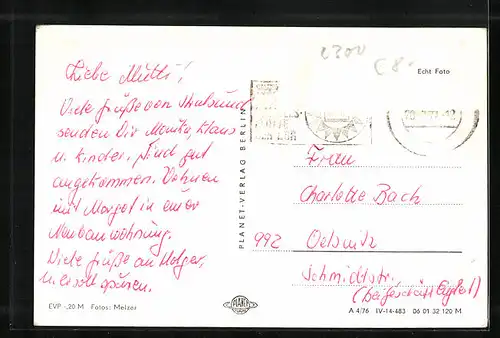 Liebe Mutti!
Viele Grüße von
senden Dir Monika, Klaus
u. Kinder. Sind gut
angekommen. Wohnen
mit Margot in einer
Neubauwohnung.
Viele Grüße an Holger,
u.
EVP -,20 M Fotos: Melzer
PLANET-VERLAG BERLIN
PLANET
Echt Foto
Frau
Charlotte Bach
992 Oelsnitz
Schmidtstr.
A 4/76 IV-14-483 06 01 32 120 M